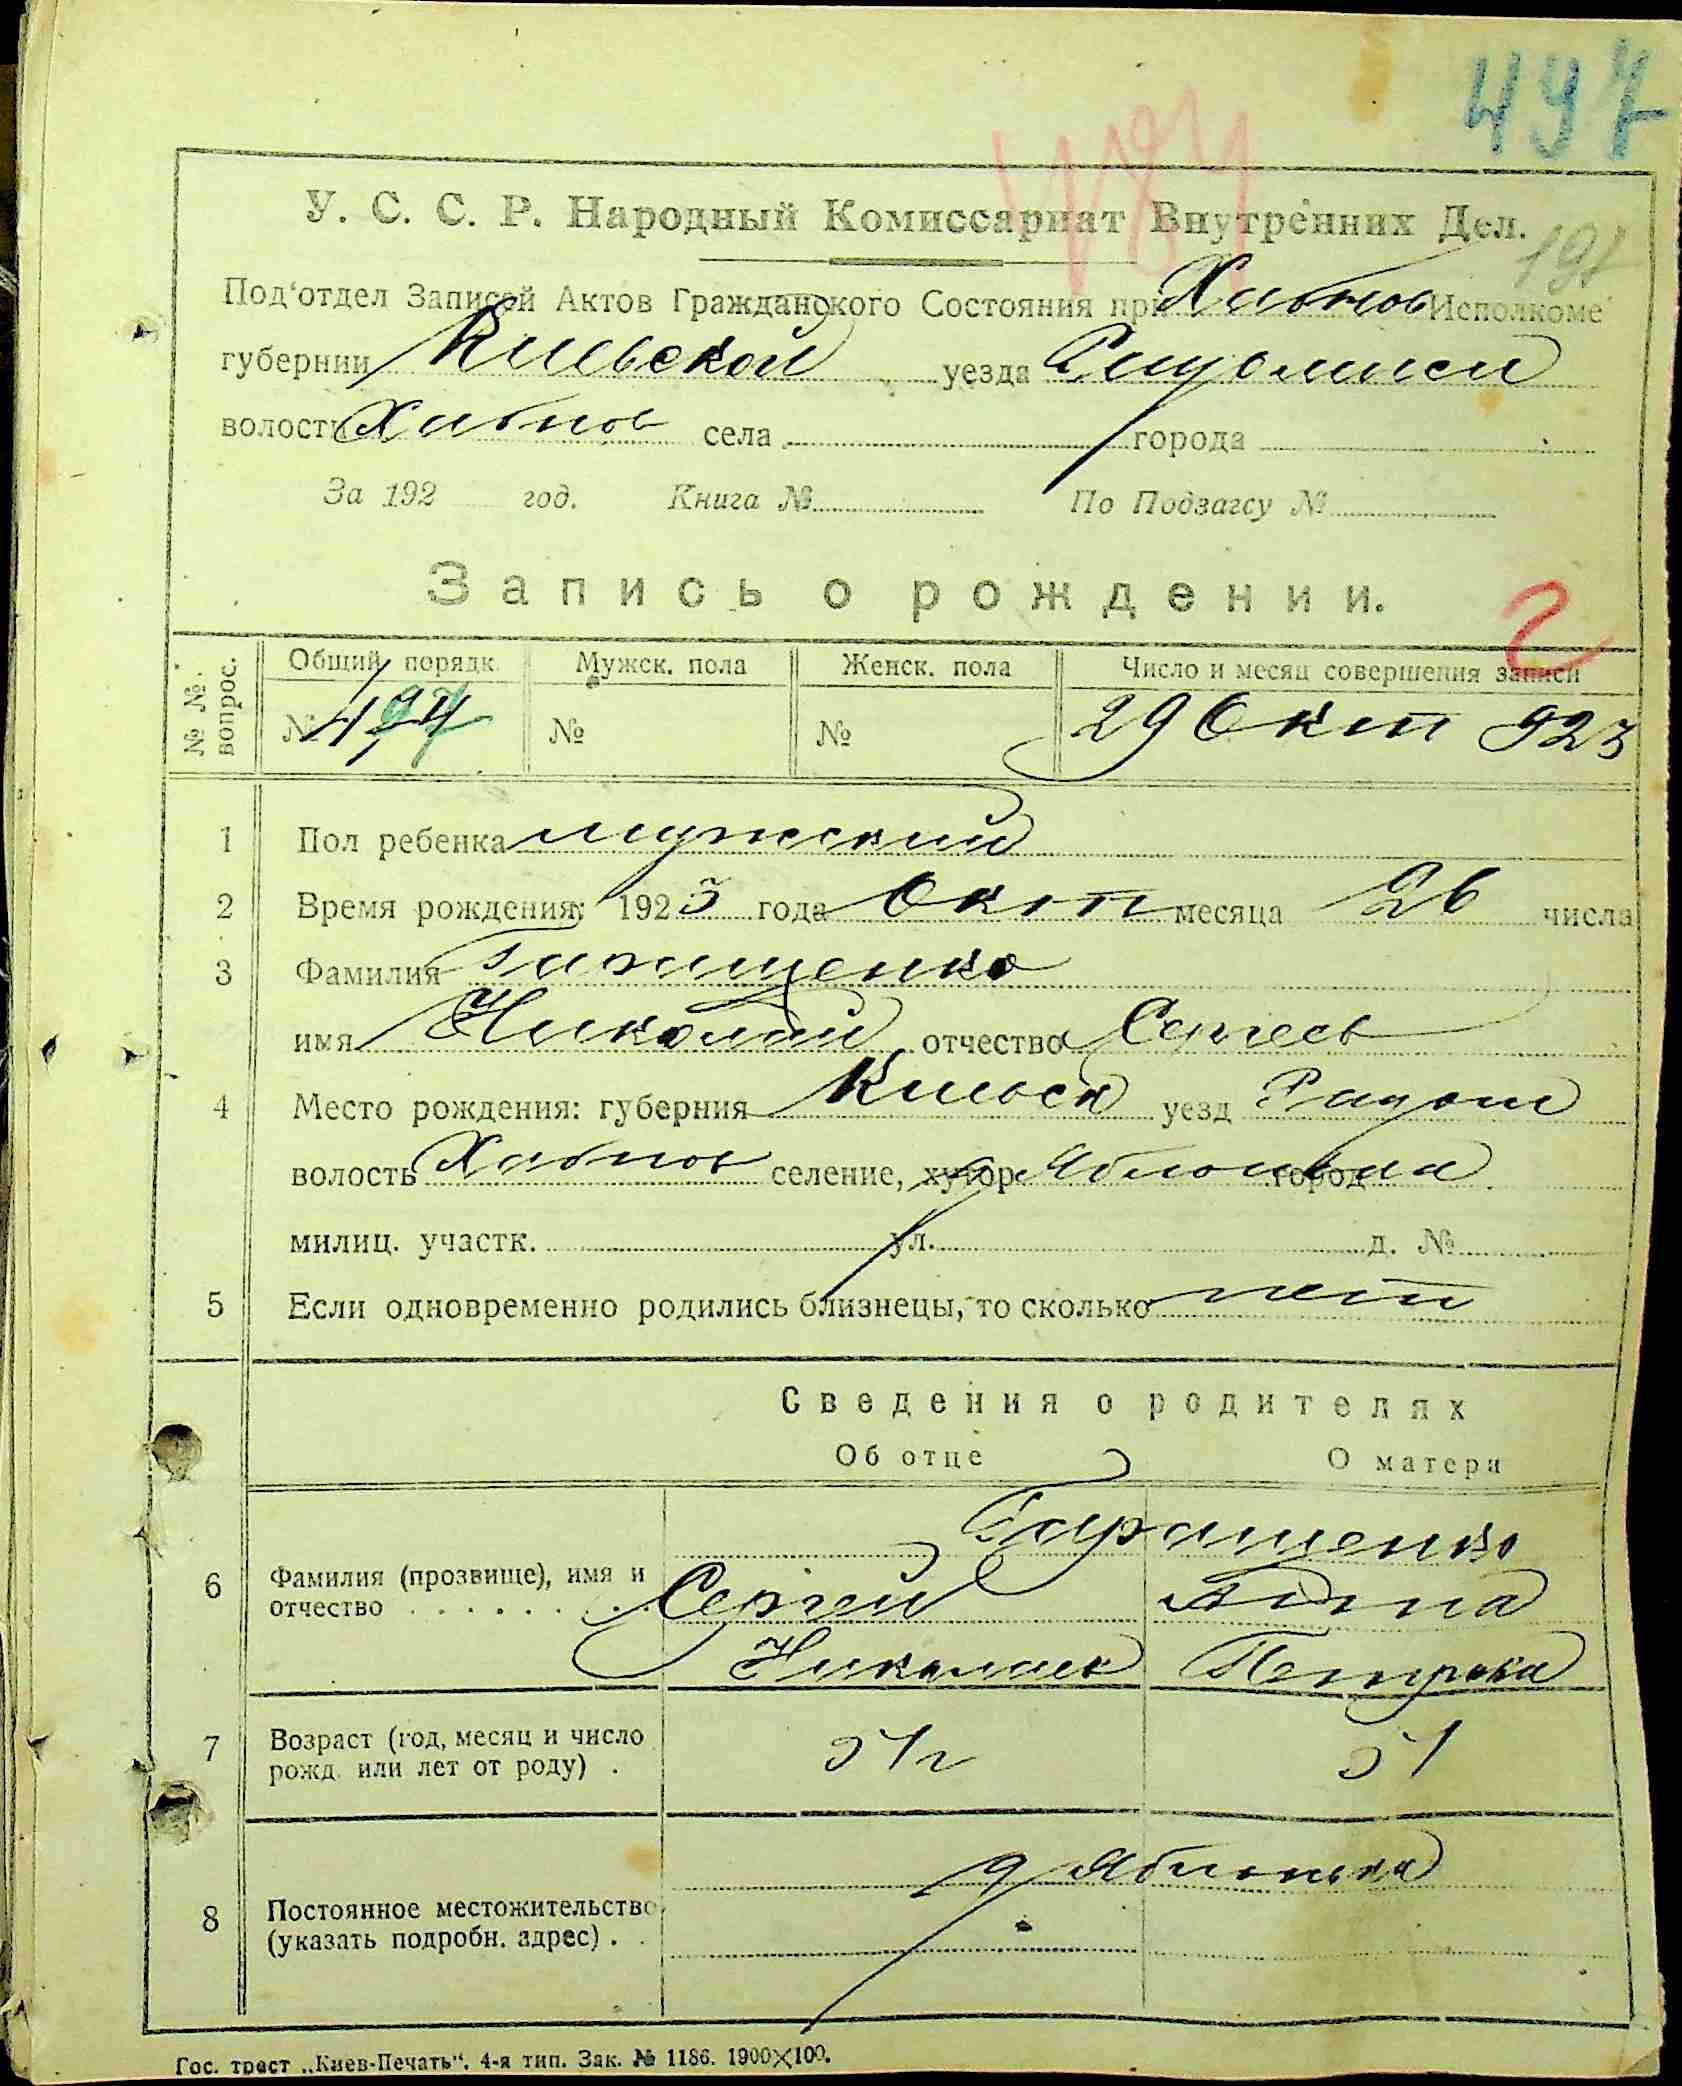 497
197
У. С. С. Р. Народный Комиссариат Внутренних Дел.
Под'отдел Записей Актов Гражданского Состояния при Хабнов Исполкоме
губернии Киевской уезда
волости Хабнов села города
За 192 год. Книга № По Подзагсу №
Запись о рождении.
№ № вопрос. Общий порядк. Мужск. пола Женск. пола Число и месяц совершения записи
№ № № 29 Окт 923
1 Пол ребенка мужский
2 Время рождения: 1923 года Окт месяца 26 числа
3 Фамилия Гаращенко
имя Николай отчество Сергеев
4 Место рождения: губерния Киевск уезд Радом
волость Хабнов селение, хутор Яблонька город
милиц. участк. ул. д. №
5 Если одновременно родились близнецы, то сколько нет
Сведения о родителях
Об отце О матери
Гаращенко
6 Фамилия (прозвище), имя и отчество Сергей Анна
Николаев Петровна
7 Возраст (год, месяц и число рожд. или лет от роду) . 51 51
д Яблонька
8 Постоянное местожительство (указать подробн. адрес) . .
Гос. трест „Киев-Печать“. 4-я тип. Зак. № 1186. 1900×100.